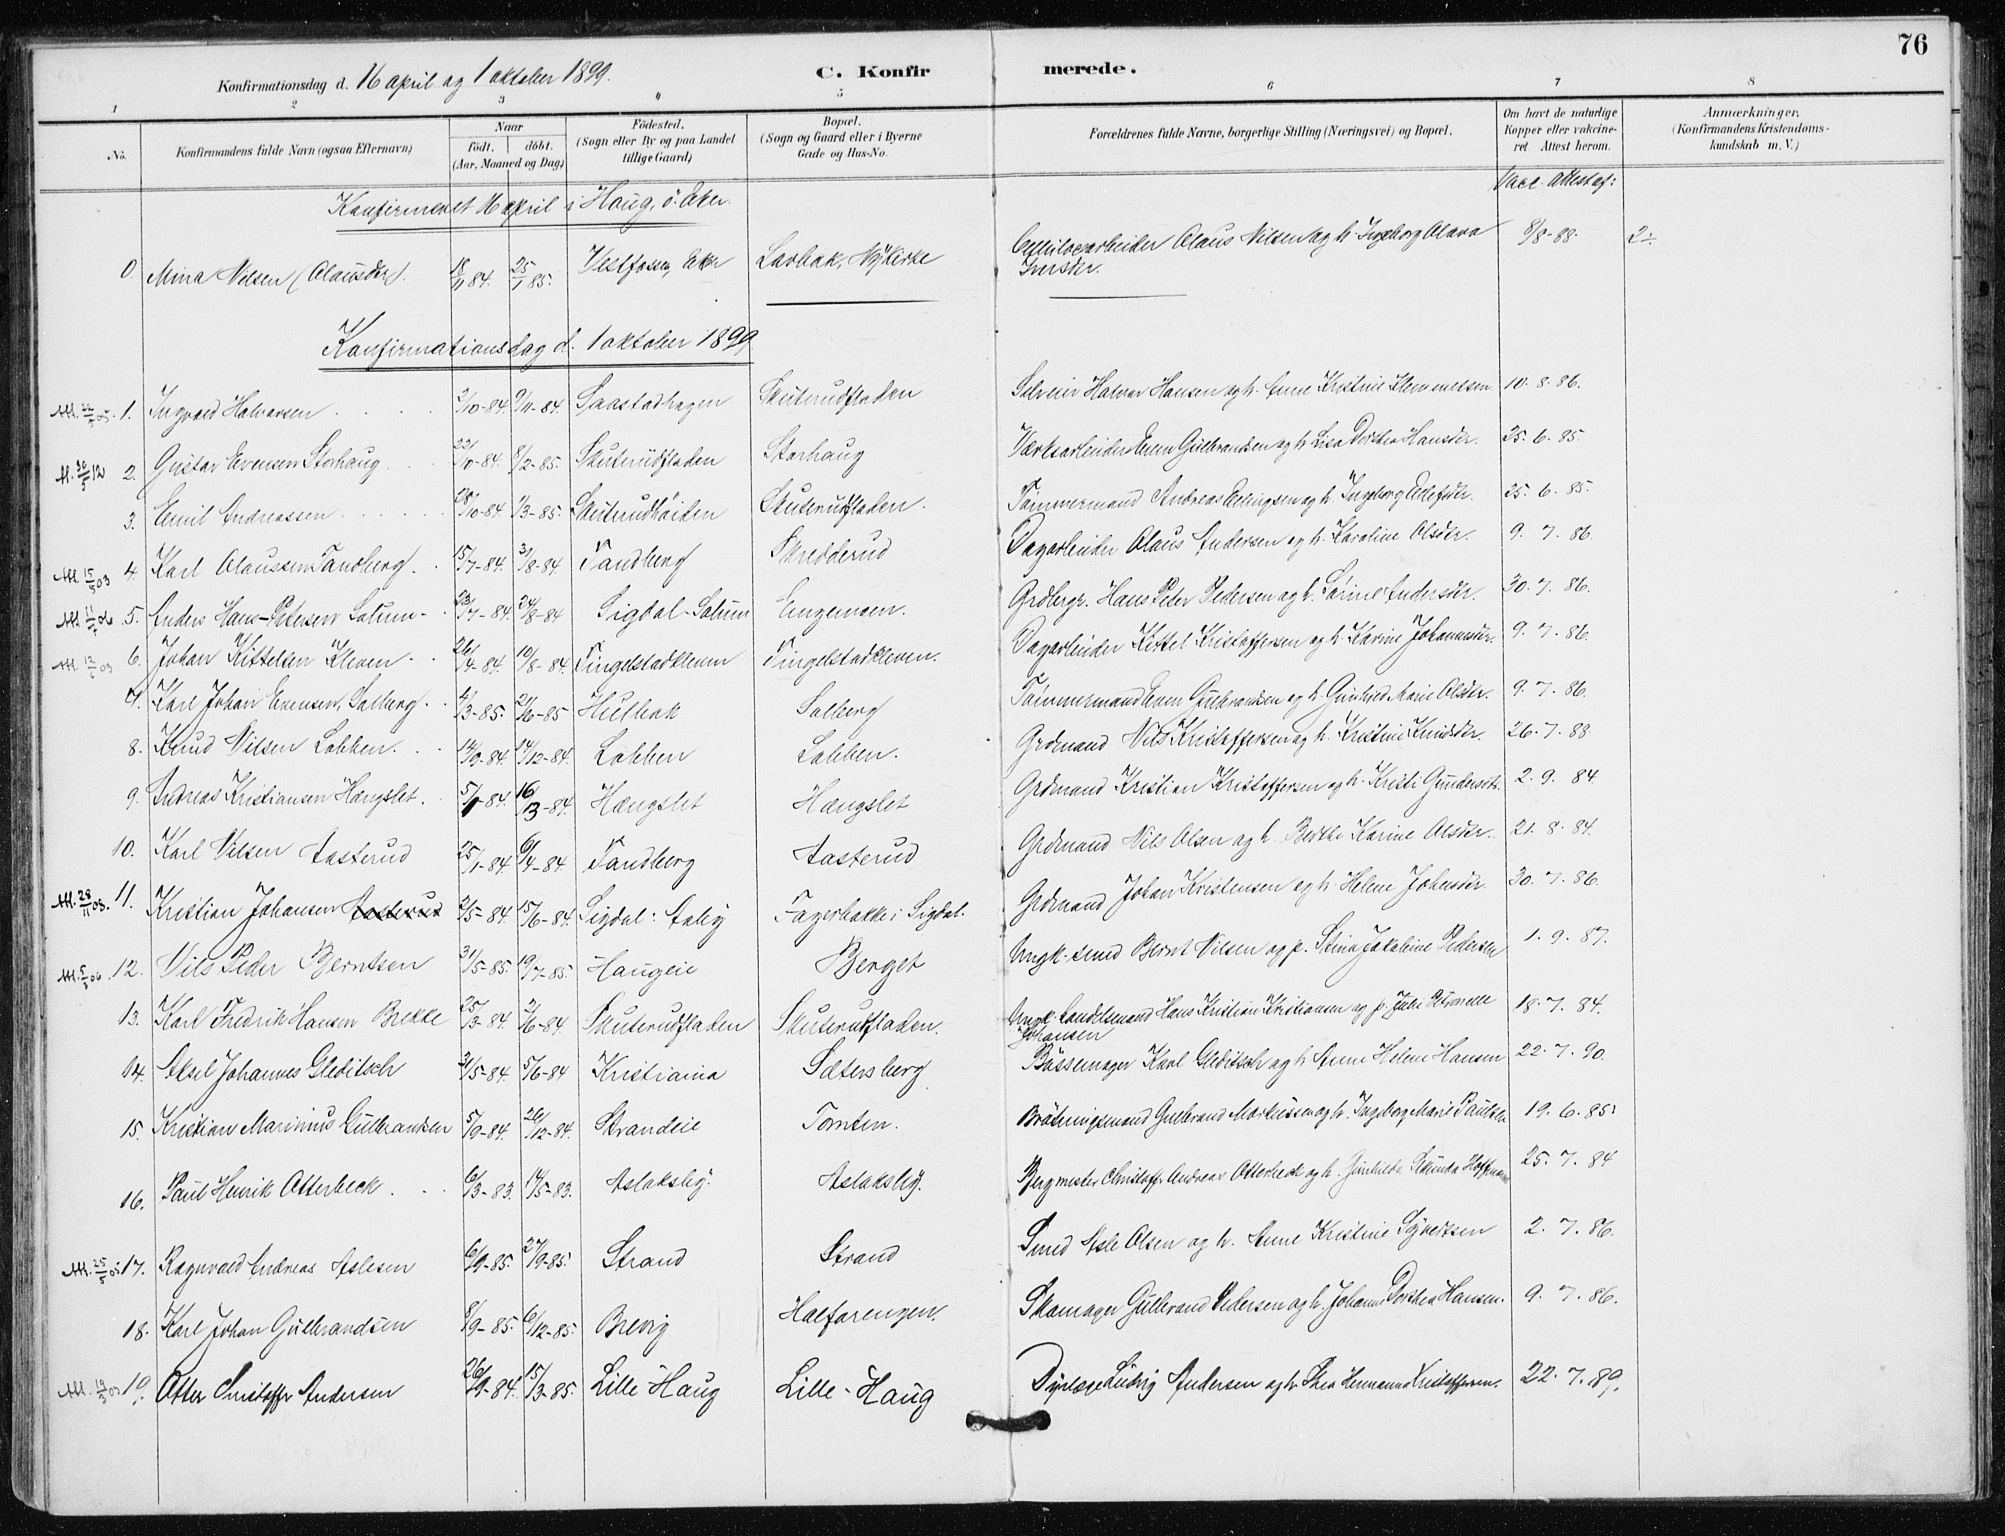 76
Konfirmationsdag d. 16 april og 1 oktober 1899.
C. Konfirmerede.
1 2 3 4 5 6 7 8
No. Konfirmandens fulde Navn (ogsaa Efternavn) Naar födt. döbt. (Aar, Maaned og Dag) Födested. (Sogn eller By og paa Landet tillige Gaard) Bopæl. (Sogn og Gaard eller i Byerne Gade og Hus-No. Forældrenes fulde Navne, borgerlige Stilling (Næringsvei) og Bopæl. Om havt de naturlige Kopper eller vakcineret. Attest herom. Anmærkninger. (Konfirmandens Kristendomskundskab m. V.)
Vacc. attest af:
Konfirmeret 16 april i Haug, ö. Eker.
0 Mina Nilsen (Olausdtr). 18/11 84. 25/1 85. Vestfossen, Eker Lavbak, Nykirke Cellulosearbeider Olaus Nilsen og h. Ingeborg Olava Iversdtr. 8/8-88. 2÷
Konfirmationsdag d. 1 oktober 1899.
1. Ingvald Halvorsen 2/10-84 9/11-84 Saastadhagen Skuterudfladen Selveier Halvor Hansen og h. Anne Kristine Klemmetsen 10.8.86.
M. 30/5 12 2. Gustav Evensen Storhaug 22/10-84. 8/2-85. Skuterudfladen Storhaug Værksarbeider Even Gulbrandsen og h. Lisa Dorthea Hansdtr. 25.6.85.
3. Emil Andreassen 28/10-84. 1/3-85. Skuterudhöiden Skuterudfladen. Tömmermand Andreas Ellingsen og h. Ingeborg Ellefsdtr. 25.6.85.
Ml. 15/5 03 4. Karl Olaussen Tandberg. 15/7-84. 31/8-84. Tandberg Skredderud Dagarbeider Olaus Andersen og h. Karoline Olsdtr. 9.7.86.
5. Anders Hans-Petersen Solum 23/7-84. 24/8-84 Sigdal-Solum Engemoen. Grdbrgr. Hans Peter Pedersen og h. Sörine Andersdtr. 30.7.86.
6. Johan Kittelsen Kleven 26/4-84. 10/8-84 Tingelstadkleven Tingelstadkleven. Dagarbeider Kittel Kristoffersen og h. Karine Johannesdtr. 9.7.86.
7. Karl Johan Evensen Solberg 4/3-85. Hulbak Solberg Tömmermand Even Gulbrandsen og h. Gunhild Marie Olsdtr. 9.7.86.
8. Knud Nilsen Lobben. 14/12-84. Lobben Lobben. Grdmand Nils Kristoffersen og h. Kristine Knudsdtr. 26.7.88
9. Andreas Kristiansen Hængslet. 5/1-84. 16/3-84. Hængslet Hængslet Grdmand Kristian Kristoffersen og h. Kristi Gundersdtr. 2.9.84
10. Karl Nilsen Aasterud 25/1-84. 6/4-84. Tandberg Aasterud Grdmand Nils Olsen og h. Berthe Karine Olsdtr. 21.8.84.
Ml. 28/11 03. 11. Kristian Johansen Aasterud 2/5-84. 15/6-84. Sigdal: Aaby Fagerbakke i Sigdal. Grdmand Johan Kristensen og h. Helene Johnsdtr. 30.7.86.
12. Nils Peder Berntsen 31/5-85. 19/7-85. Haugeie Berget Ungk. smed Bernt Nilsen og p. Stina Jakobine Pedersen 1.9.87.
13. Karl Fredrik Hansen Brekke 25/3-84. 2/6-84. Skuterudfladen Skuterudfladen. Ungk. Landhandelsmand Hans Kristian Kristiansen og p. Julie Petronelle Johansen 18.7.84.
14. Aksel Johannes Gleditsch 21/5-84. 5/6-84 Kristiania Sætersberg Bössemager Karl Gleditsch og h. Anne Helene Hansen 22.7.90.
15. Kristian Marinius Gulbrandsen 5/9-84. 26/12-84. Strandeie Tomten. Bråtningsmand Gulbrand Markussen og h. Ingeborg Marie Paulsdtr 19.6.85.
16. Paul Henrik Otterbeck 6/3-83. 14/5-83. Aslaksby. Aslaksby. Bergmester Christoffer Andreas Otterbeck og h. Gunhilda Sekunda Hoffmann 25.7.84
Ml. 25/5 05 17. Ragnvald Andreas Aslesen 6/9-85. 27/9-85. Strand Strand Smed Asle Olsen og h. Anne Kristine Syvertsen 2.7.86.
18. Karl Johan Gulbrandsen 8/9-85. 6/12-85. Brevig Halforengen. Skomager Gulbrand Pedersen og h. Johanne Dorthea Hansen. 9.7.86.
19. Otter Christoffer Andersen 26/9-84. 15/3-85. Lille Haug Lille-Haug Dyrlæge Ludvig Andersen og h. Thea Hermanna Kristoffersen. 22.7.89.